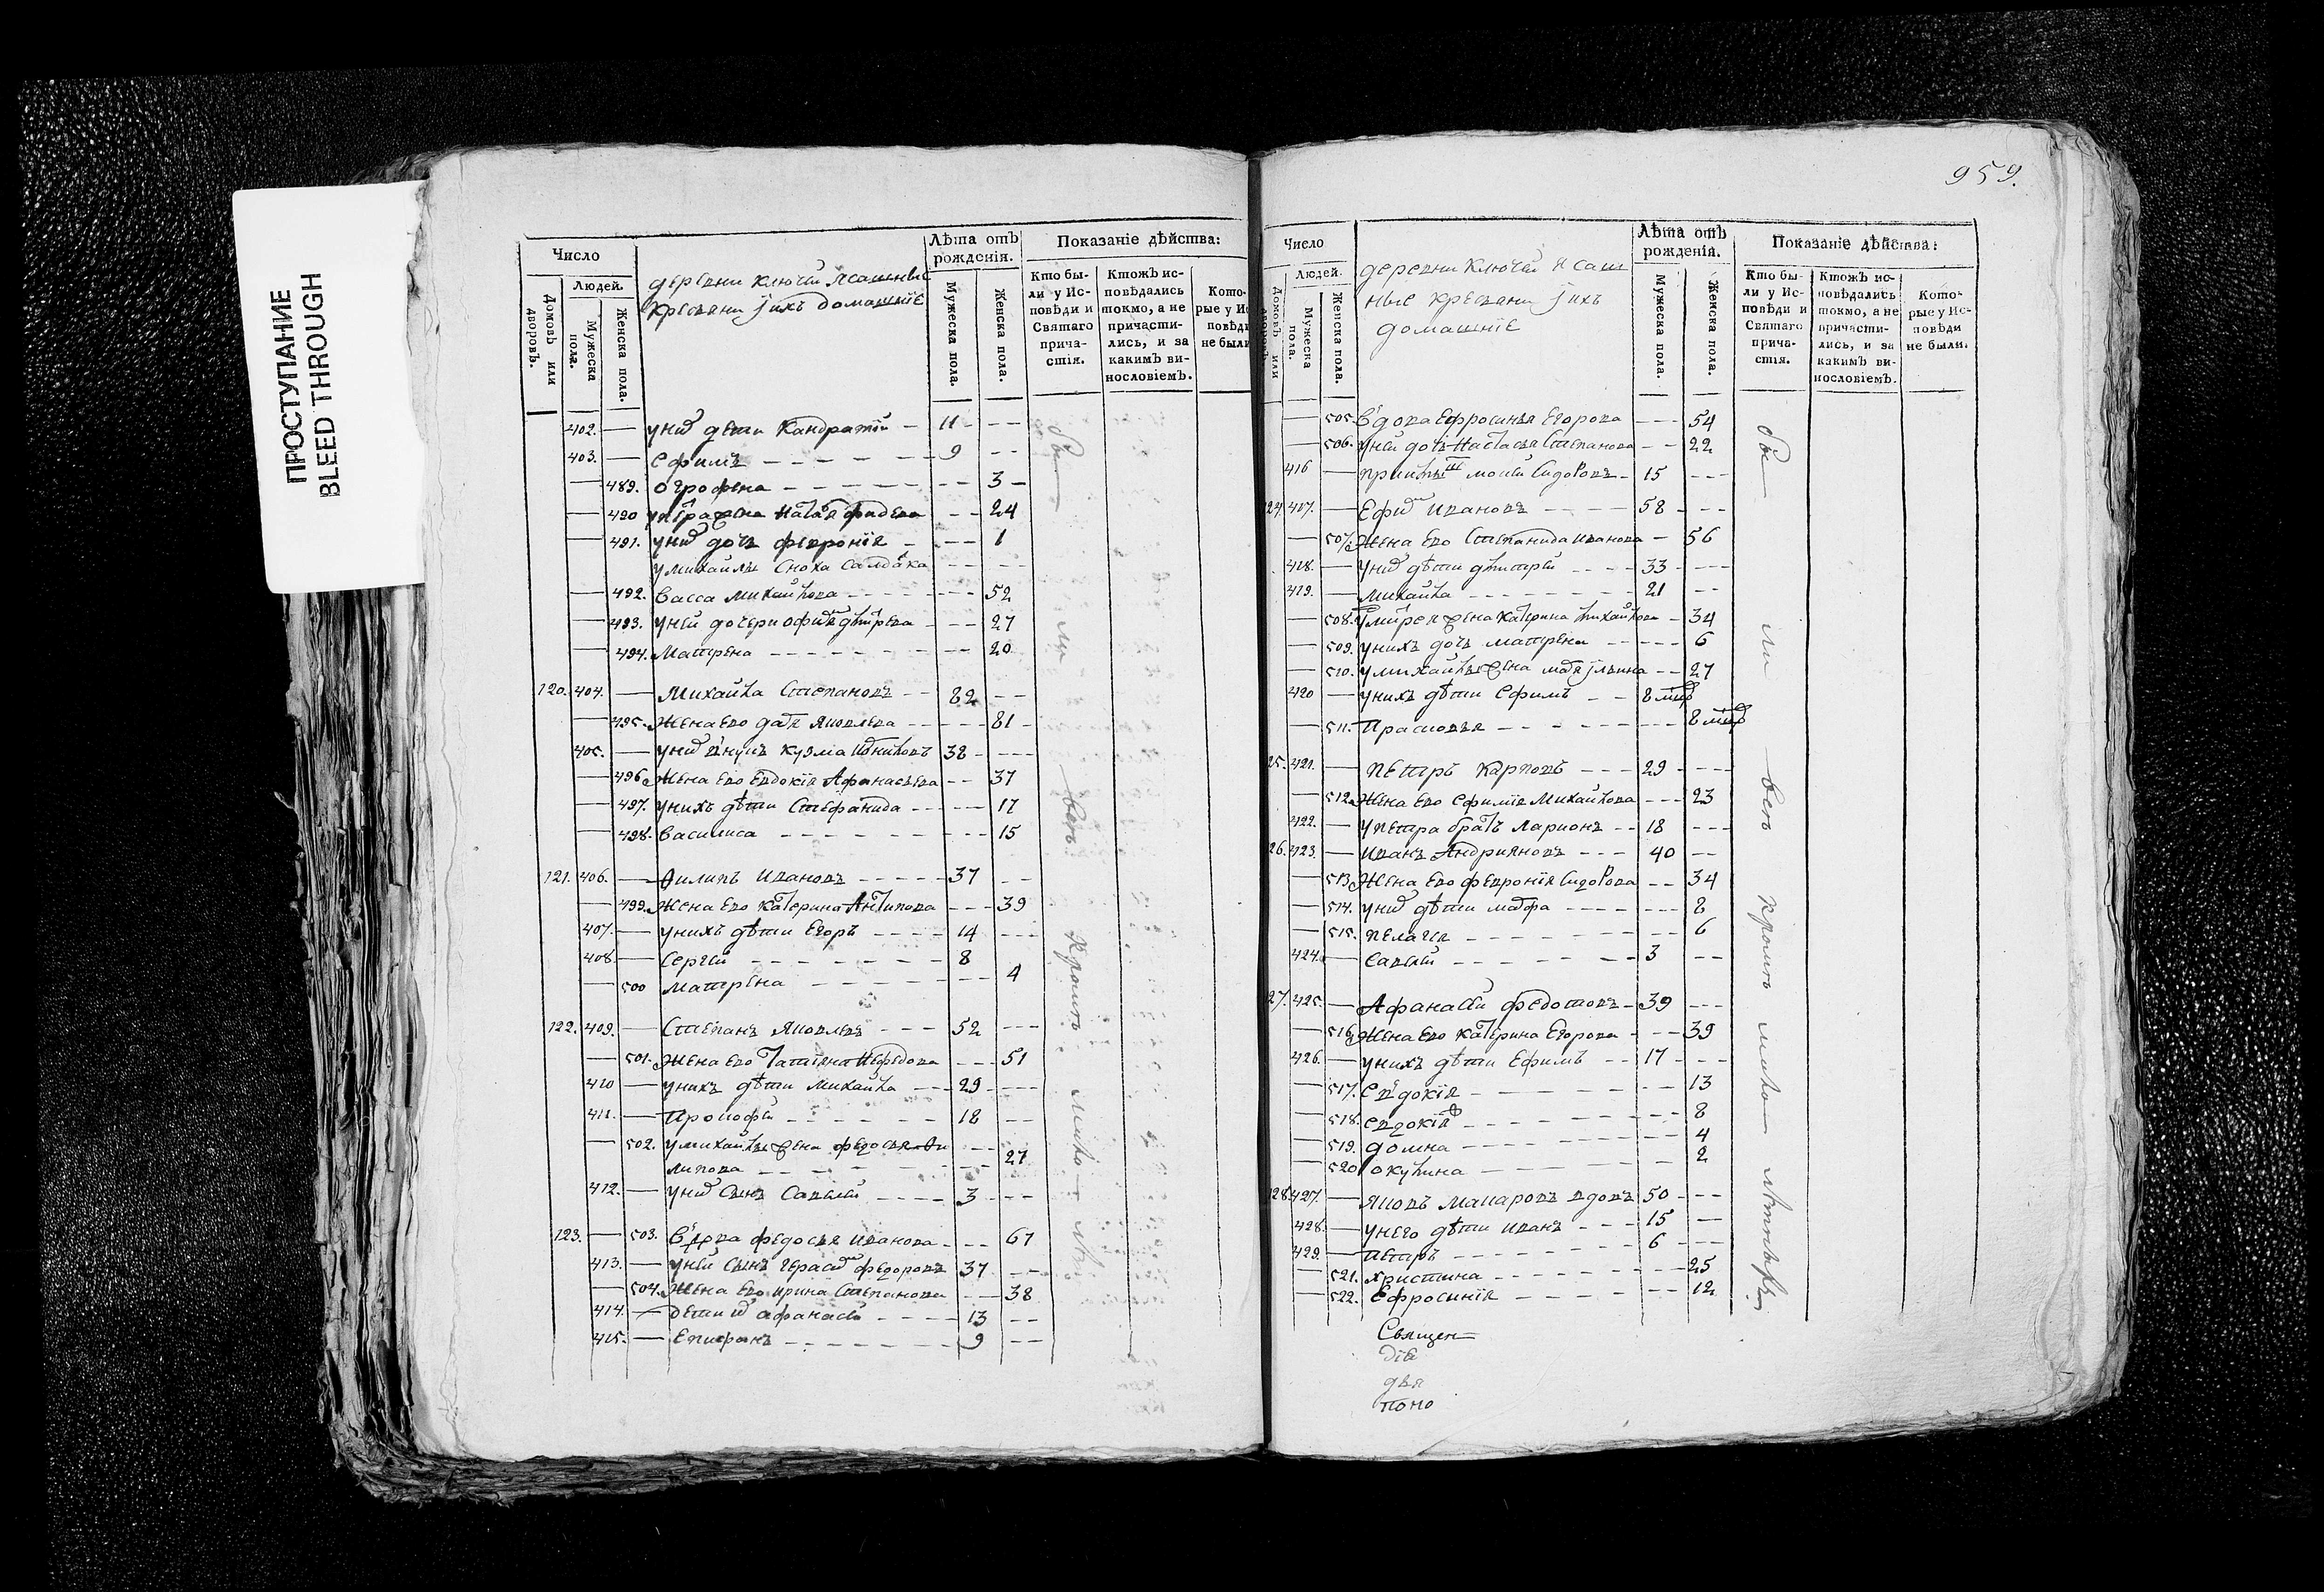 ПРОСТУПАНИЕ
BLEED THROUGH
959.
Число
Людей.
Домовъ или дворовъ.
Мужеска пола.
Женска пола.
деревни Ключей ясашные
кресьяни јихъ домашнїе
Лѣта отъ рожденія.
Мужеска пола.
Женска пола.
Показаніе дѣйства:
Кто были у Исповѣди и Святаго причастія.
Ктожъ исповѣдались токмо, а не причастились, и за какимъ винословіемъ.
Которые у И повѣди не были
402. — унио дети Кандратїй — 11 - - -
403. — Ефимъ — 9 - -
— 489. Огрофена — 3
— 490 24
— 491. унио дочь Феврония — 1
умихайлы сноха салдака
— 492. Васса Михайлова — 52
— 493. уней дочери 27
— 494. Матрена — 20
120. 404. — Михайла Степановъ — 82
— 495. Жена ево Дарья Яковлева — 81
405. — унио внукъ Кузма 38
— 496. Жена ево Евдокїя Афанасьева — 37
— 497. унихъ дѣти Стефанида — 17
— 498. Василиса — 15
121. 406. — Филипъ Ивановъ — 37
— 499. Жена ево Катерина Антипова — 39
407. — унихъ дѣти Егоръ — 14
408. — Сергей — 8
— 500 Матрена — 4
122. 409. — Степанъ Яковлевъ — 52
— 501. Жена ево Татїяна Нефедова — 51
410 — унихъ дѣти Михайла — 29
411. — Прокофей — 18
— 502. умихайлы жена Федосья Фи
липова — 27
412. — унио сынъ Савелей — 3
123. — 503. Вдова Федосья Иванова — 67
413. — уней сынъ Герасимъ Федоровъ 37
— 504. Жена ево Ирина Степанова — 38
414 — дети ио Афанасей — 13
415. — Епифанъ — 9
бы — ли — все кроме мало — лѣт
Число
Людей.
Домовъ или дворовъ.
Мужеска пола.
Женска пола.
деревни Ключей ясаш
ные кресьяни јихъ
домашнїе
Лѣта отъ рожденія.
Мужеска пола.
Женска пола.
Показаніе дѣйства:
Кто были у Исповѣди и Святаго причастія.
Ктожъ исповѣдались токмо, а не причастились, и за какимъ винословіемъ.
Которые у Исповѣди не были.
— 505. Вдова Ефросинья Егорова — 54
— 506. уней дочь Настасья Степанова — 22
416 — Сидоровъ — 15
124 417. — Ефимъ Ивановъ — 58
— 507. Жена ево Степанида Иванова — 56
418. — унио дѣти Дмитрей — 33
419. — Михайла — 21
— 508. жена Катерина Михайлова — 34
— 509. унихъ дочь Матрена — 6
— 510. умихайлы жена Марья Јльина — 27
420 — унихъ дѣти Ефимъ — 8
— 511. Прасковья — 8
25. 421. — Петръ Карповъ — 29
— 512. Жена ево Ефимїя Михайлова — 23
422. — упетра братъ Ларионъ — 18
26. 423. — Иванъ Андрияновъ — 40
— 513. Жена ево Февронїя Сидорова — 34
— 514. унио дѣти Марфа — 8
— 515. Пелагея — 6
424. — Савелей — 3
27. 425. — Афанасей Федотовъ — 39
— 516. Жена ево Катерина Егорова — 39
426. — унихъ дѣти Ефимъ — 17
— 517. Евдокїя — 13
— 518. Евдокїя — 8
— 519. Домна — 4
— 520 Окулина — 2
128. 427. — Яковъ Макаровъ вдовъ 50
428. — унего дѣти Иванъ — 15
429. — Петръ — 6
— 521. Христина — 25
— 522. Ефросинїя — 12
бы — ли — все кроме мало — лѣтныхъ
Священ
дїя
дья
поно